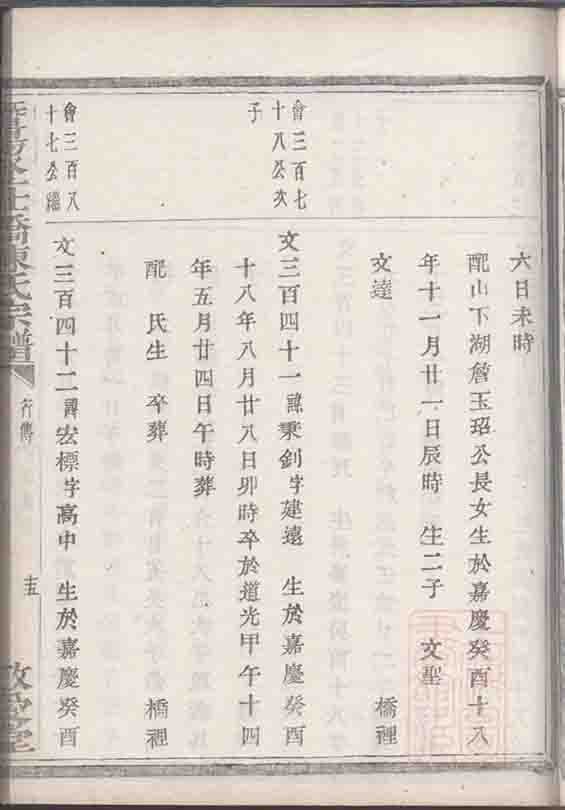 六日未時
配山下湖詹玉瑫公長女生於嘉慶癸酉十八
年十一月廿一日辰時 生二子 文聖
文達 橋裡
會三百七
十八公次
子
文三百四十一諱秉釗字建遠 生於嘉慶癸酉
十八年八月廿八日卯時卒於道光甲午十四
年五月廿四日午時葬
配 氏生 卒葬 橋裡
會三百八
十七公繼
文三百四十二諱宏標字高中 生於嘉慶癸酉
橋陳氏宗譜
行傳
十五
敬愛堂